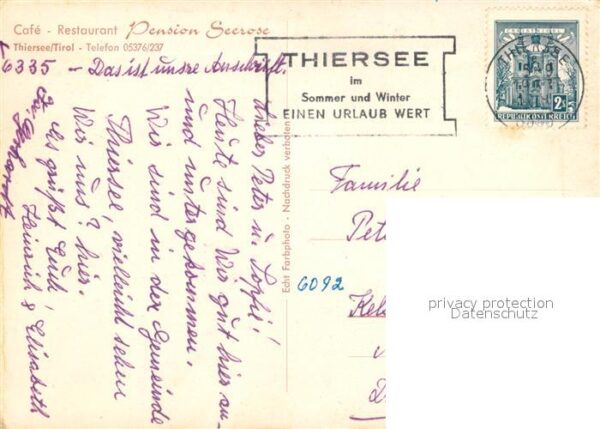 Café - Restaurant Pension Seerose
Thiersee/Tirol - Telefon 05376/237
6335 - Das ist unsre Anschrift.
Lieber Peter u. Sophie!
Heute sind wir gut hier an-
und untergekommen.
Wir sind in der Gemeinde
Thiersee, vielleicht sehen
wir uns? hier.
Es grüßt Euch
Heinrich & Elisabeth
Echt Farbphoto - Nachdruck verboten
THIERSEE
im
Sommer und Winter
EINEN URLAUB WERT
THIERSEE
2S
REPUBLIK ÖSTERREICH
Familie
Pet
6092
Kel
privacy protection
Datenschutz